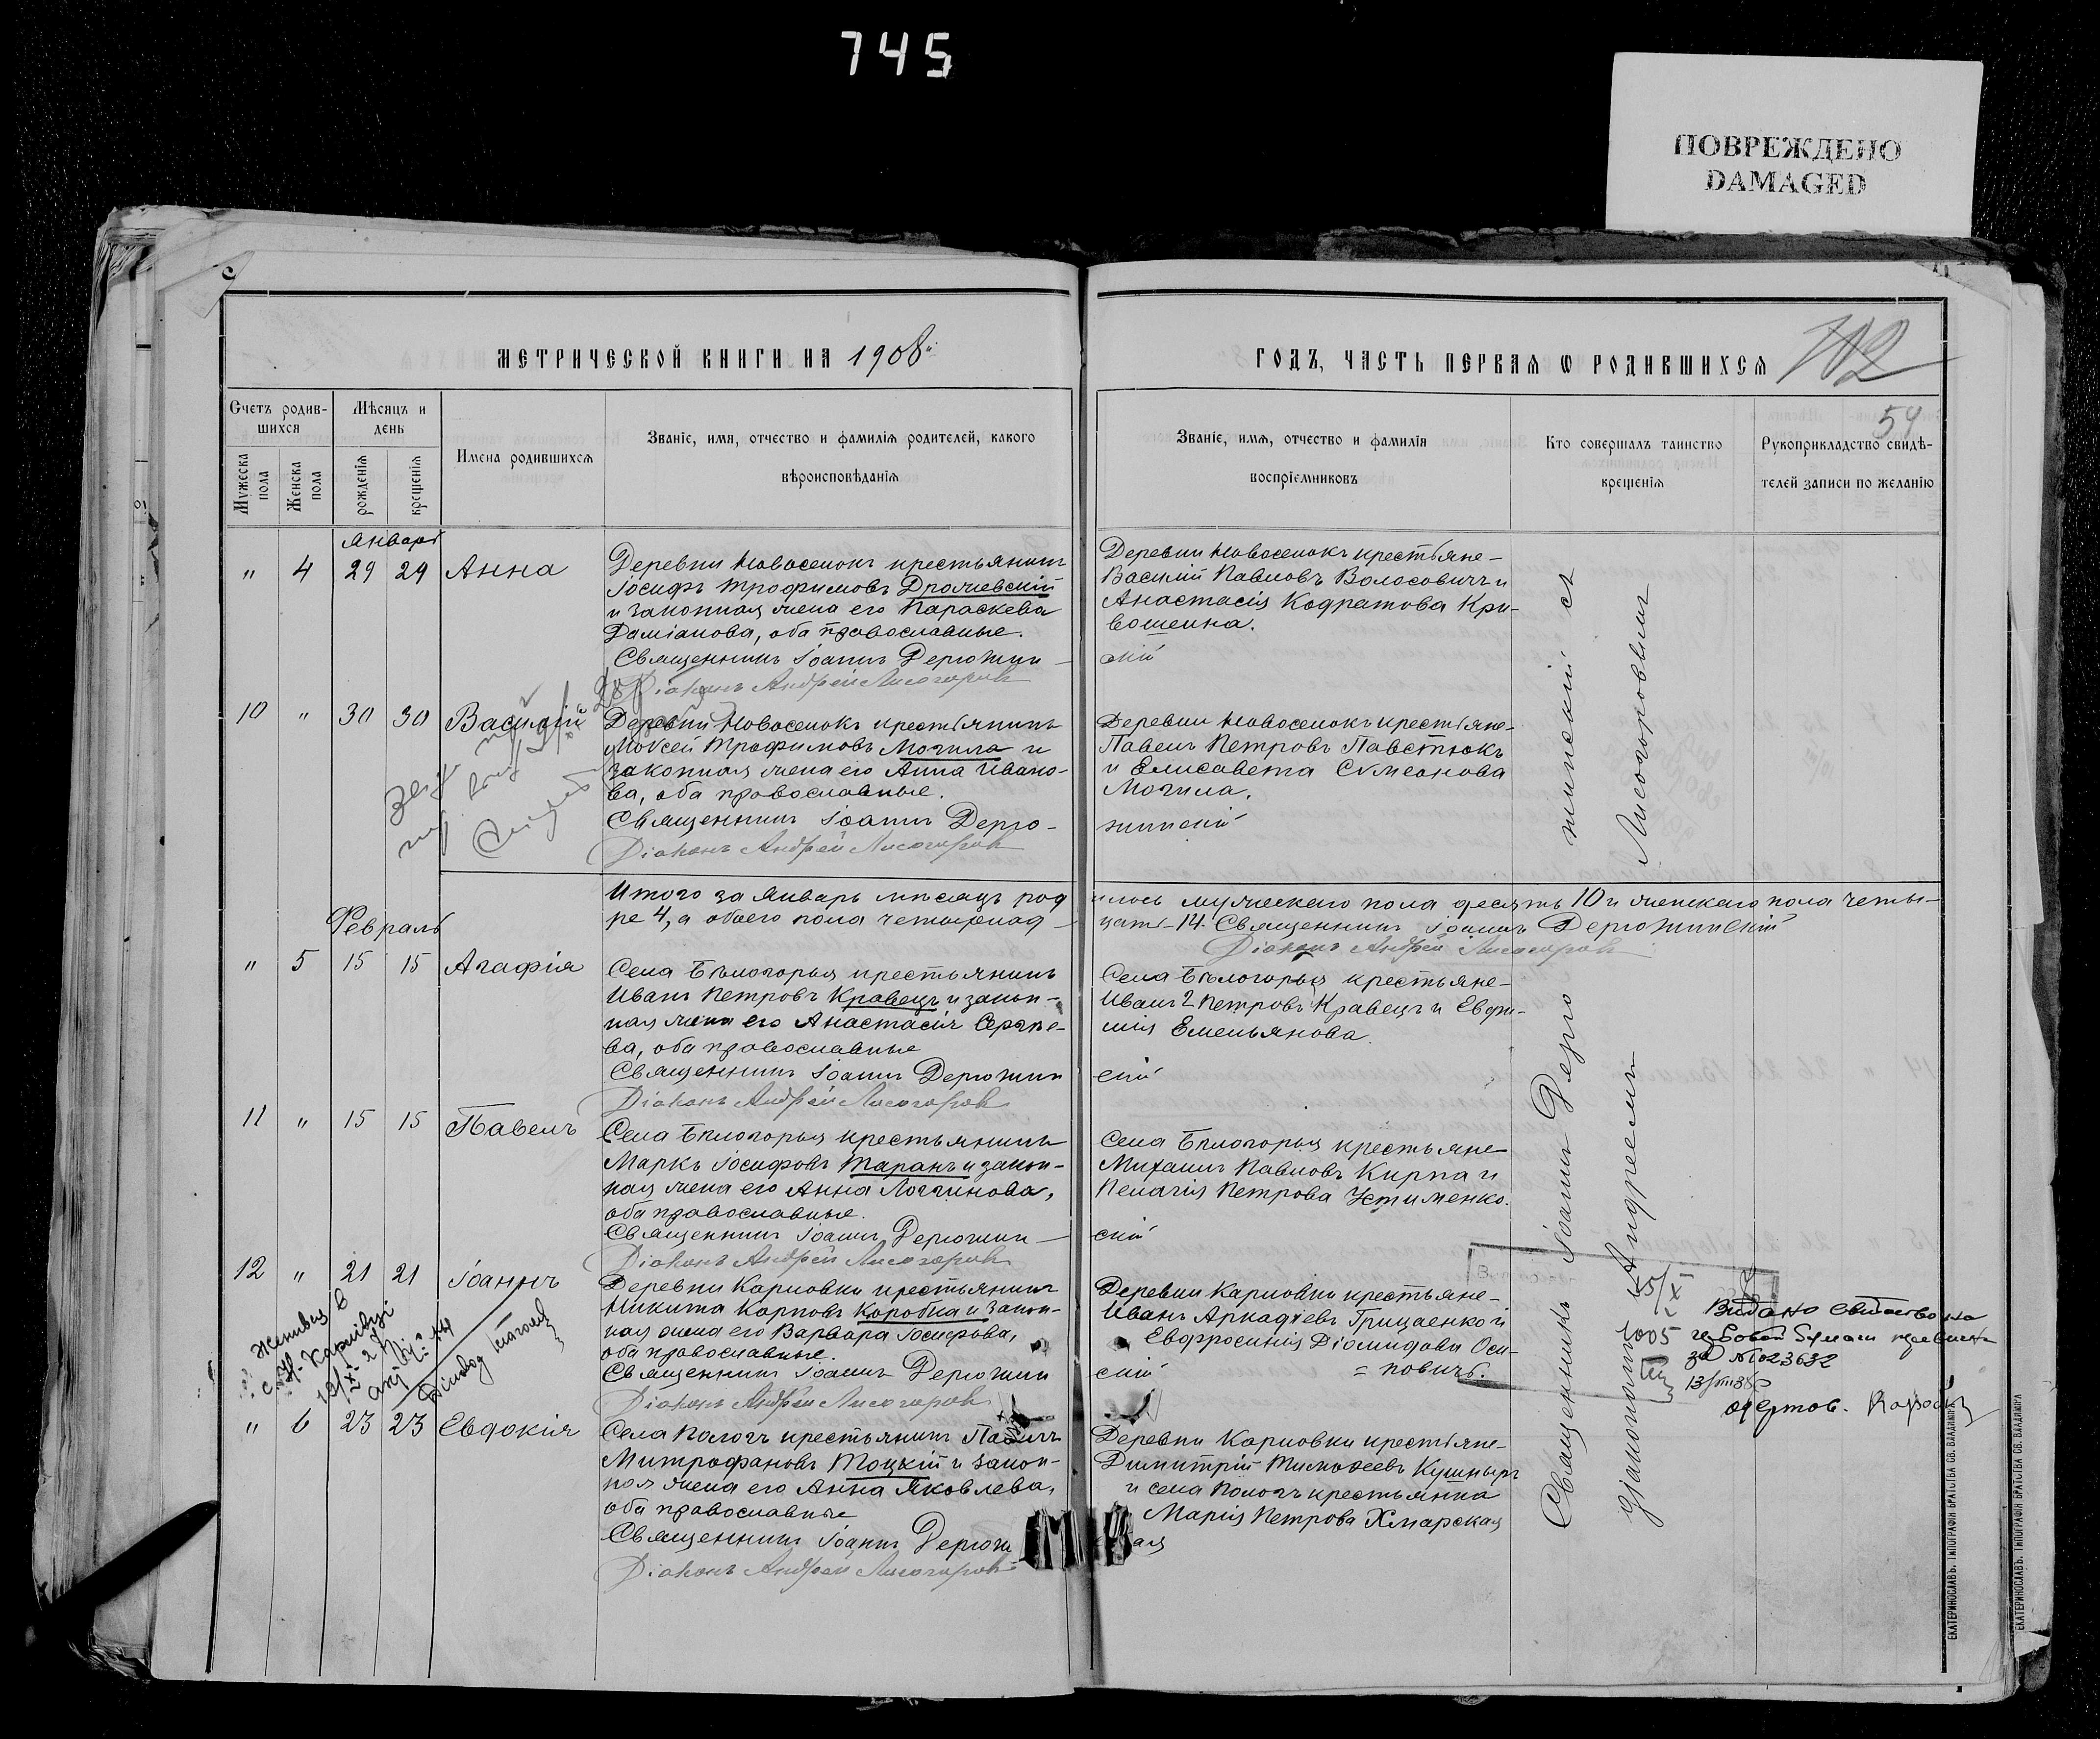 745
ПОВРЕЖДЕНО
DAMAGED
МЕТРИЧЕСКОЙ КНИГИ НА 1908й
ГОДЪ, ЧАСТЬ ПЕРВАЯ Ѡ РОДИВШИХСЯ
102
54
Счетъ родив-
шихся
Мѣсяцъ и
день
Мужеска
пола
Женска
пола
рожденія
крещенія
Имена родившихся
Званіе, имя, отчество и фамилія родителей, какого
вѣроисповѣданія
Званіе, имя, отчество и фамилія
воспріемниковъ
Кто совершалъ таинство
крещенія
Рукоприкладство свидѣ-
телей записи по желанію
Январь
" 4 29 29 Анна
Деревни Новоселокъ крестьянинъ
Іосифъ Трофимовъ
и законная жена его Параскева
Даміанова, оба православные.
Священникъ Іоаннъ Дерюжин-
скій
Діаконъ Андрей Лисогоровъ
Деревни Новоселокъ крестьяне-
Василій Павловъ Волосовичъ и
Анастасія Кодратова Кри-
вошеина.
10 " 30 30 Василій
Деревни Новоселокъ крестьянинъ
Моѵсей Трофимовъ Могила и
законная жена его Анна Ивано-
ва, оба православные.
Священникъ Іоаннъ Дерю-
жинскій
Діаконъ Андрей Лисогоровъ
Деревни Новоселокъ крестьяне-
Павелъ Петровъ Павстюкъ
и Елисавета Сѵмеонова
Могила.
Итого за Январь мѣсяцъ род
илось мужескаго пола десять 10 и женскаго пола четы-
ре 4, а обоего пола четырнад-
цать-14. Священникъ Іоаннъ Дерюжинскій
Діаконъ Андрей Лисогоровъ
Февраль
" 5 15 15 Агафія
Села Бѣлогорья крестьянинъ
Иванъ Петровъ Кравецъ и закон-
ная жена его Анастасія Сергѣе-
ва, оба православные
Священникъ Іоаннъ Дерюжин
скій
Діаконъ Андрей Лисогоровъ
Села Бѣлогорья крестьяне-
Иванъ 2 Петровъ Кравецъ и Евфи-
мія Емельянова.
11 " 15 15 Павелъ
Села Бѣлогорья крестьянинъ
Маркъ Іосифовъ Таранъ и закон-
ная жена его Анна Логгинова,
оба православные.
Священникъ Іоаннъ Дерюжин-
скій
Діаконъ Андрей Лисогоровъ
Села Бѣлогорья крестьяне
Михаилъ Павловъ Кирпа и
Пелагія Петрова Устименко.
12 " 21 21 Іоаннъ
Деревни Карловки крестьянинъ
Никита Карповъ Коробка и закон-
ная жена его Варвара Іосифова,
оба православные.
Священникъ Іоаннъ Дерюжин
скій
Діаконъ Андрей Лисогоровъ
Деревни Карловки крестьяне-
Иванъ Аркадіевъ Грицаенко и
Евфросинія Діомидова Оси-
=повичъ.
" 6 23 23 Евдокія
Села Пологъ крестьянинъ Павелъ
Митрофановъ Тоцкій и закон-
ная жена его Анна Яковлева,
оба православные
Священникъ Іоаннъ Дерюжи
Діаконъ Андрей Лисогоровъ
Деревни Карловки крестьяне-
Димитрій Тимоѳеевъ Кушныръ
и села Пологъ крестьянка
Марія Петрова Хмарская
Священникъ Іоаннъ Дерюжинскій съ
діакономъ Андреемъ Лисогоровымъ
5/X
1005
за №023632
ЕКАТЕРИНОСЛАВЪ. ТИПОГРАФІЯ БРАТСТВА СВ. ВЛАДИМІРА
ЕКАТЕРИНОСЛАВЪ. ТИПОГРАФІЯ БРАТСТВА СВ. ВЛАДИМІРА